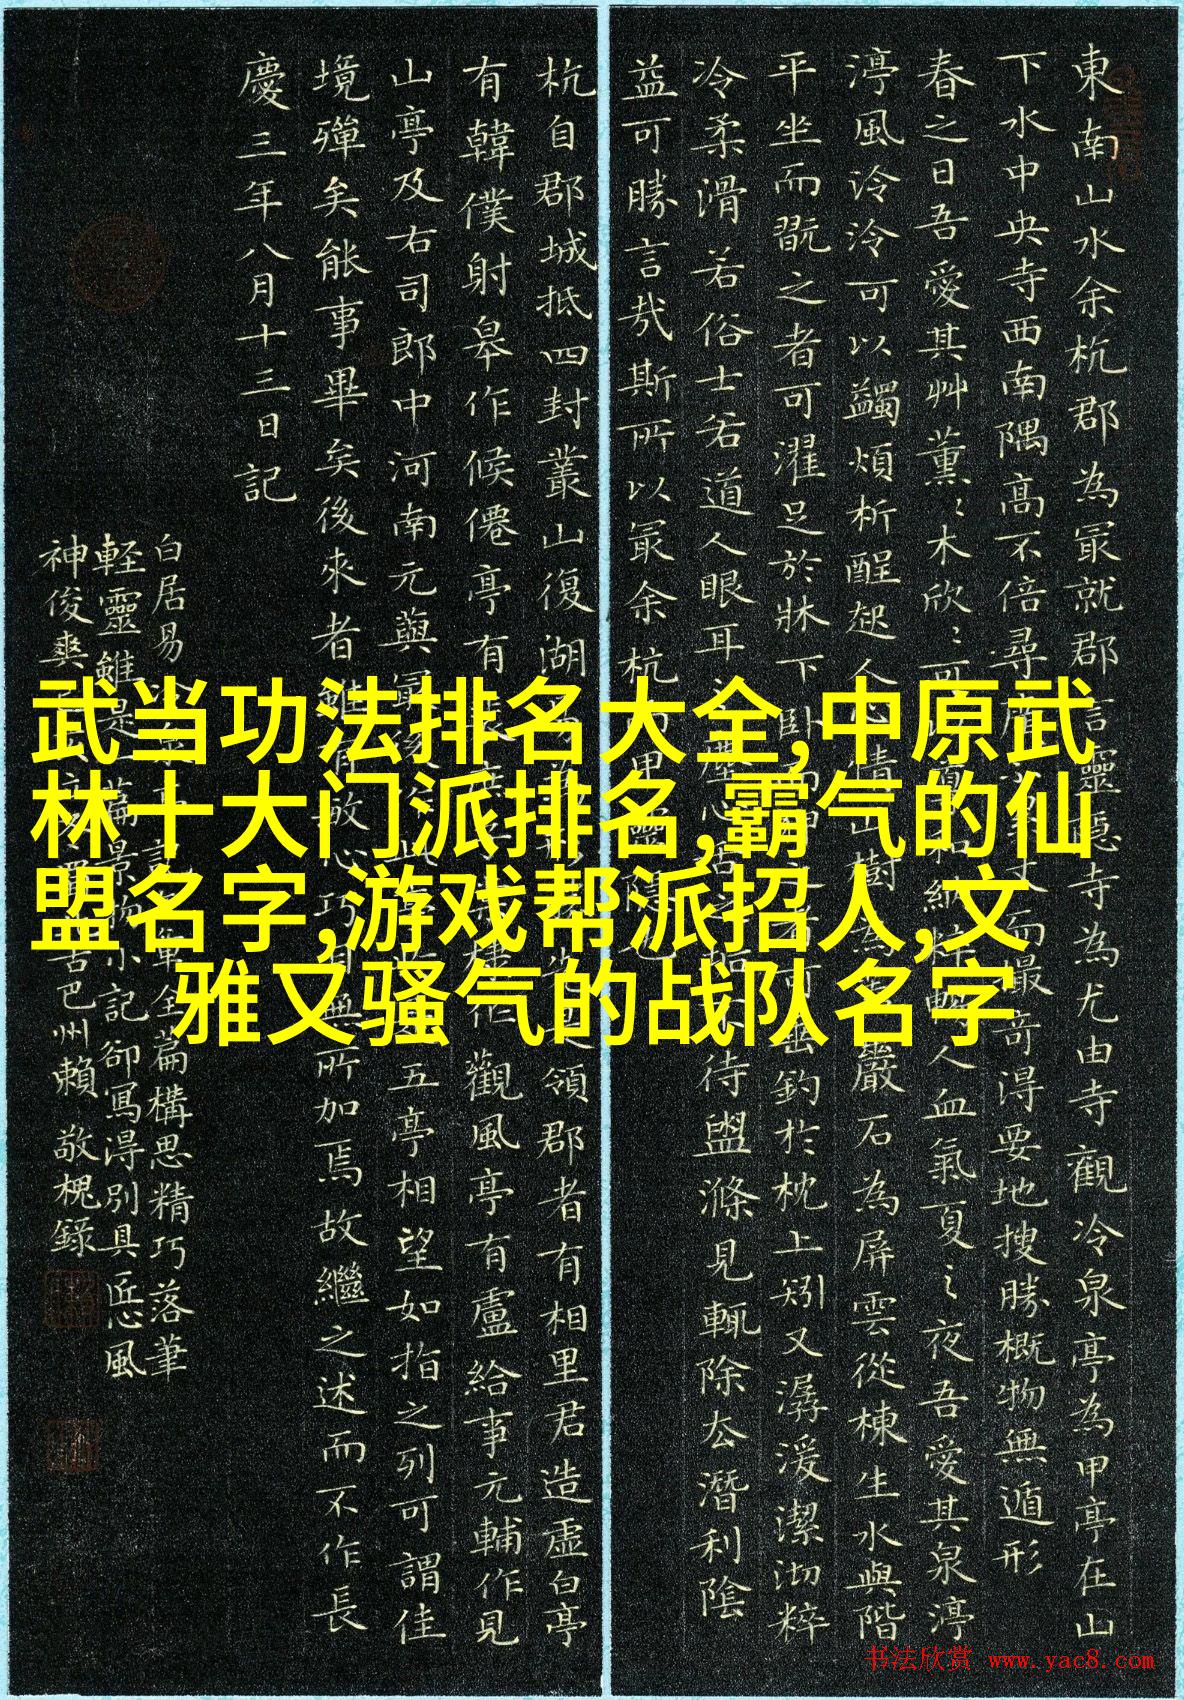 武当功法排名大全,中原武
林十大门派排名,霸气的仙
盟名字,游戏帮派招人,文
雅又骚气的战队名字
東南山水余杭郡為冣就郡言靈隱寺為尤由寺觀冷泉亭為甲亭在山
下水中央寺西南隅高不倍尋廣而撮奇淂要地搜勝概物無遁形
春之日吾愛其艸薰〻木欣〻可人血氣夏之夜吾愛其泉渟
渟風泠泠可以蠲煩析酲起人情山樹為巖石為屏雲從棟生水與階
平坐而翫之者可濯足於牀下卧垂釣於枕上矧又潺湲潔沏粹
冷柔滑若俗士若道人眼耳之塵心待盥滌見輒除去潛利陰
益可勝言哉斯所以冣余杭而甲靈隱也
杭自郡城抵四封叢山復湖領郡者有相里君造虛白亭
有韓僕射皋作候僊亭有作觀風亭有盧給事元輔作見
山亭及右司郎中河南元藇冣五亭相望如指之列可謂佳
境殫矣能事畢矣後來者雖有敏心巧目無所加焉故繼之述而不作長
慶三年八月十三日記
白居易年全篇構思精巧落筆
輕靈雖是一篇景物小記卻寫淂別具匠心風
神俊爽巴州賴敬槐錄
书法欣赏 www.yac8.com